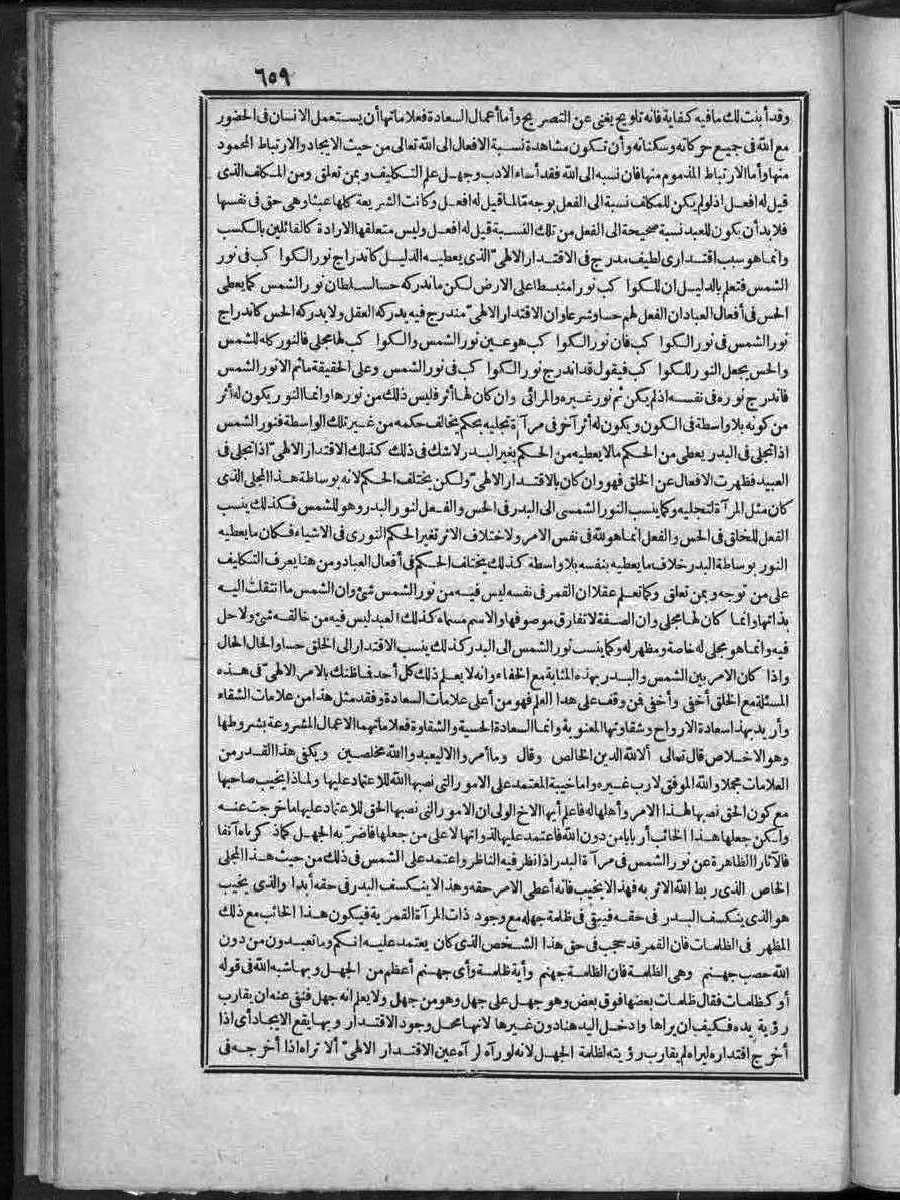 ٦٥٩
وقد أبنت لك ما فيه كفاية فانه تلويح يغنى عن التصريح وأما أعمال السعادة فعلاماتها أن يستعمل الانسان فى الحضور
مع الله فى جميع حركاته وسكناته وأن تكون مشاهدة نسبة الافعال الى الله تعالى من حيث الايجاد والارتباط المحمود
منها وأما الارتباط المذموم منها فان نسبه الى الله فقد أساء الادب وجهل علم التكليف وبمن تعلق ومن المكلف الذى
قيل له افعل اذ لو لم يكن للمكلف نسبة الى الفعل بوجه ما لما قيل له افعل وكانت الشريعة كلها عبثا وهى حق فى نفسها
فلا بد أن يكون للعبد نسبة صحيحة الى الفعل من تلك النسبة قيل له افعل وليس متعلقها الارادة كالقائلين بالكسب
وانما هو سبب اقتدارى لطيف مدرج فى الاقتدار الالهىّ الذى يعطيه الدليل كاندراج نور الكواكب فى نور
الشمس فتعلم بالدليل ان للكواكب نورا منبسطا على الارض لكن ما ندركه حسا لسلطان نور الشمس كما يعطى
الحس فى أفعال العباد ان الفعل لهم حسا وشرعا وان الاقتدار الالهىّ مندرج فيه يدركه العقل ولا يدركه الحس كاندراج
نور الشمس فى نور الكواكب فان نور الكواكب هو عين نور الشمس والكواكب لها مجلى فالنور كله للشمس
والحس يجعل النور للكواكب فيقول قد اندرج نور الكواكب فى نور الشمس وعلى الحقيقة ما ثم الا نور الشمس
فاندرج نوره فى نفسه اذ لم يكن ثم نور غيره والمرائى وان كان لها أثر فليس ذلك من نورها وانما النور يكون له أثر
من كونه بلا واسطة فى الكون ويكون له أثر آخر فى مرآة تجليه بحكم يخالف حكمه من غير تلك الواسطة فنور الشمس
اذا تجلى فى البدر يعطى من الحكم ما لا يعطيه من الحكم بغير البدر لا شك فى ذلك كذلك الاقتدار الالهىّ اذا تجلى فى
العبيد فظهرت الافعال عن الخلق فهو وان كان بالاقتدار الالهىّ ولكن يختلف الحكم لانه بوساطة هذا المجلى الذى
كان مثل المرآة لتجليه وكما ينسب النور الشمسى الى البدر فى الحس والفعل لنور البدر وهو للشمس فكذلك ينسب
الفعل للخلق فى الحس والفعل انما هو لله فى نفس الامر ولاختلاف الاثر تغير الحكم النورى فى الاشياء فكان ما يعطيه
النور بوساطة البدر خلاف ما يعطيه بنفسه بلا واسطة كذلك يختلف الحكم فى أفعال العباد ومن هنا يعرف التكليف
على من توجه وبمن تعلق وكما تعلم عقلا ان القمر فى نفسه ليس فيه من نور الشمس شئ وان الشمس ما انتقلت اليه
بذاتها وانما كان لها مجلى وان الصفة لا تفارق موصوفها والاسم مسماه كذلك العبد ليس فيه من خالقه شئ ولا حل
فيه وانما هو مجلى له خاصة ومظهر له وكما ينسب نور الشمس الى البدر كذلك ينسب الاقتدار الى الخلق حسا والحال الحال
واذا كان الامر بين الشمس والبدر بهذه المثابة مع الخفاء وانه لا يعلم ذلك كل أحد فما ظنك بالامر الالهىّ فى هذه
المسئلة مع الخلق أخفى وأخفى فمن وقف على هذا العلم فهو من أعلى علامات السعادة وفقد مثل هذا من علامات الشقاء
وأريد بهذا سعادة الارواح وشقاوتها المعنوية وانما السعادة الحسية والشقاوة فعلاماتهما الاعمال المشروعة بشروطها
وهو الاخلاص قال تعالى ألا لله الدين الخالص وقال وما أمروا الا ليعبدوا الله مخلصين ويكفى هذا القدر من
العلامات مجملا والله الموفق لا رب غيره واما خيبة المعتمد على الامور التى نصبها الله للاعتماد عليها ولماذا يخيب صاحبها
مع كون الحق نصبها لهذا الامر وأهلها له فاعلم أيها الاخ الولى ان الامور التى نصبها الحق للاعتماد عليها ما خرجت عنه
ولكن جعلها هذا الخائب أربابا من دون الله فاعتمد عليها لذواتها لا على من جعلها فاضرّ به الجهل كما ذكرناه آنفا
فالآثار الظاهرة عن نور الشمس فى مرآة البدر اذا نظر فيه الناظر واعتمد على الشمس فى ذلك من حيث هذا المجلى
الخاص الذى ربط الله الاثر به فهذا لا يخيب فانه أعطى الامر حقه وهذا لا ينكسف البدر فى حقه أبدا والذى يخيب
هو الذى ينكسف البدر فى حقه فيبقى فى ظلمة جهله مع وجود ذات المرآة القمرية فيكون هذا الخائب مع ذلك
المظهر فى الظلمات فان القمر قد حجب فى حق هذا الشخص الذى كان يعتمد عليه انكم وما تعبدون من دون
الله حصب جهنم وهى الظلمة فان الظلمة جهنم وأية ظلمة وأى جهنم أعظم من الجهل وبها شبه الله فى قوله
أو كظلمات فقال ظلمات بعضها فوق بعض وهو جهل على جهل وهو من جهل ولا يعلم انه جهل فنفى عنه ان يقارب
رؤية يده فكيف ان يراها وادخل اليد هنا دون غيرها لانها محل وجود الاقتدار وبها يقع الايجاد أى اذا
أخرج اقتداره ليراه لم يقارب رؤيته لظلمة الجهل لانه لو رآه لرآه عين الاقتدار الالهىّ ألا تراه اذا أخرجه فى